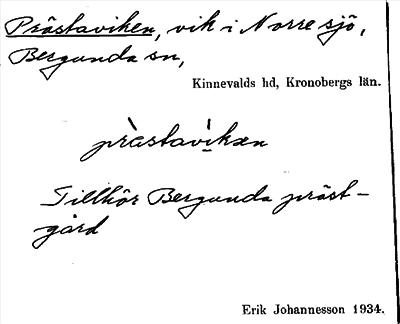 Prästaviken, vik i Norre sjö,
Bergunda sn,
Kinnevalds hd, Kronobergs län.
pràstavìkæn
Tillhör Bergunda präst-
gård
Erik Johannesson 1934.